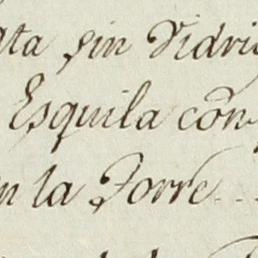 ta sin Vidri
Esquila con
n la Torre...